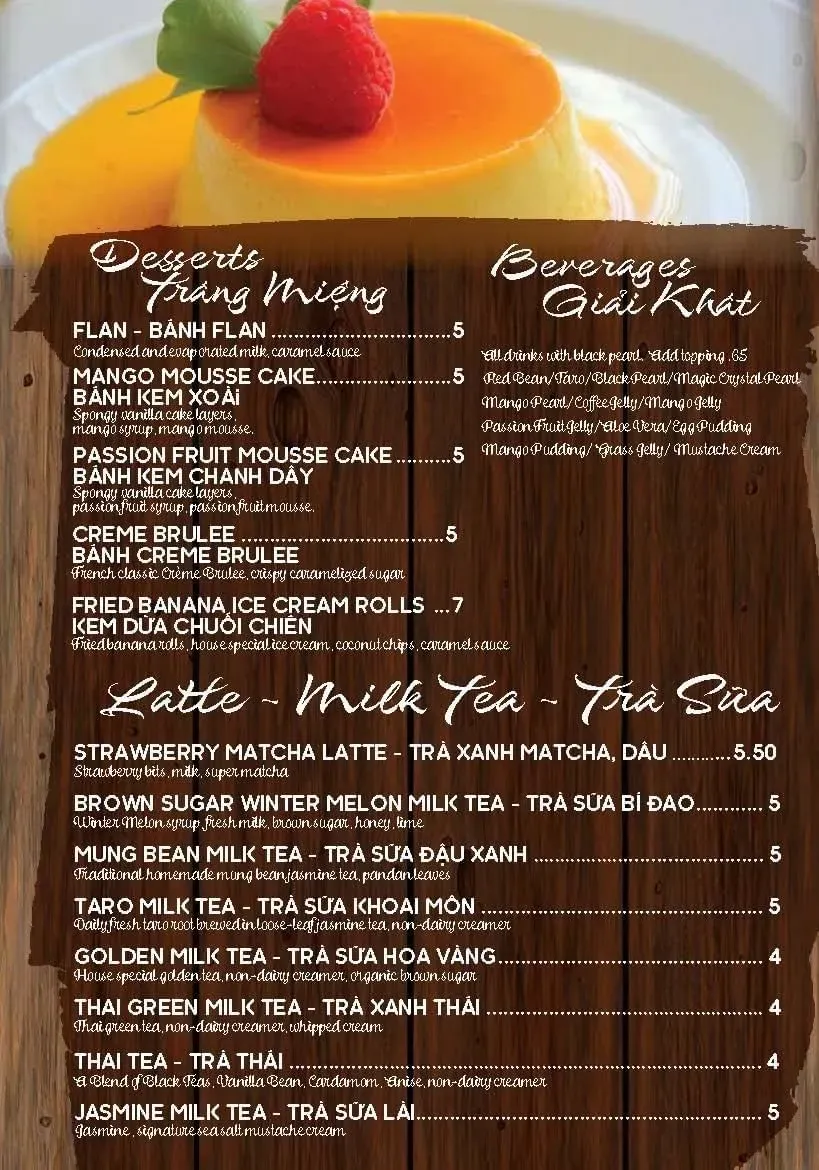 Desserts
Tráng Miệng
FLAN - BÁNH FLAN ........................................ 5
Condensed and evaporated milk, caramel sauce
MANGO MOUSSE CAKE........................ 5
BÁNH KEM XOÀI
Spongy vanilla cake layers,
mango syrup, mango mousse.
PASSION FRUIT MOUSSE CAKE ......... 5
BÁNH KEM CHANH DÂY
Spongy vanilla cake layers,
passion fruit syrup, passion fruit mousse.
CREME BRULEE .................................... 5
BÁNH CREME BRULEE
French classic Crème Brulee, crispy caramelized sugar
FRIED BANANA ICE CREAM ROLLS ...7
KEM DỪA CHUỐI CHIÊN
Fried banana rolls, house special ice cream, coconut chips, caramel sauce
Beverages
Giải Khát
All drinks with black pearl. Add topping .65
Red Bean/Taro/Black Pearl/Magic Crystal Pearl
Mango Pearl/Coffee Jelly/Mango Jelly
Passion Fruit Jelly/Aloe Vera/Egg Pudding
Mango Pudding/ Grass Jelly/ Mustache Cream
Latte ~ Milk Tea ~ Trà Sữa
STRAWBERRY MATCHA LATTE - TRÀ XANH MATCHA, DÂU ...........5.50
Strawberry bits, milk, super matcha
BROWN SUGAR WINTER MELON MILK TEA - TRÀ SỮA BÍ ĐAO............ 5
Winter Melon syrup, fresh milk, brown sugar, honey, lime
MUNG BEAN MILK TEA - TRÀ SỮA ĐẬU XANH ........................................ 5
Traditional homemade mung bean jasmine tea, pandan leaves
TARO MILK TEA - TRÀ SỮA KHOAI MÔN ................................................ 5
Daily fresh taro root brewed in loose-leaf jasmine tea, non-dairy creamer
GOLDEN MILK TEA - TRÀ SỮA HOA VÀNG.............................................. 4
House special golden tea, non-dairy creamer, organic brown sugar
THAI GREEN MILK TEA - TRÀ XANH THÁI ................................................ 4
Thai green tea, non-dairy creamer, whipped cream
THAI TEA - TRÀ THÁI .................................................................................. 4
A Blend of Black Teas, Vanilla Bean, Cardamom, Anise, non-dairy creamer
JASMINE MILK TEA - TRÀ SỮA LÀI............................................................ 5
Jasmine , signature sea salt mustache cream